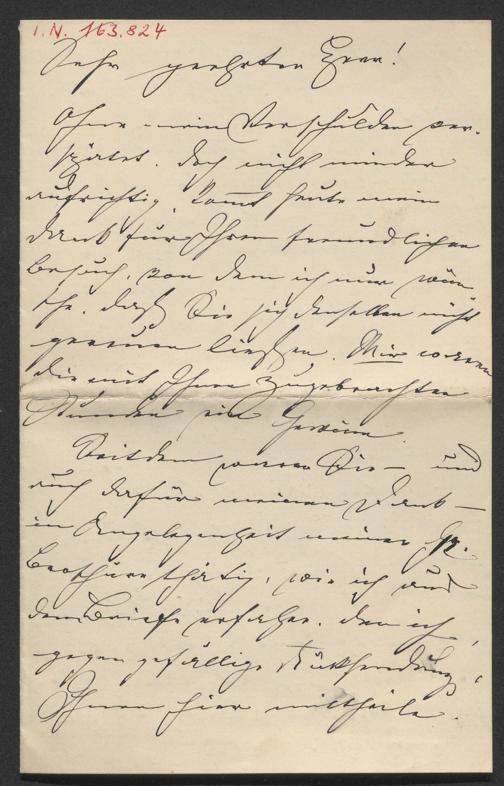 I. N. 163.824
Sehr geehrter Herr!
Ohne – mein Verschulden ver-
spätet, doch nicht minder
aufrichtig, kommt heute mein
Dank für Ihren freundlichen
Besuch, von dem ich nur wün-
sche, daß Sie sich denselben nicht
gereuen ließen. Mir waren
die mit Ihnen zugebrachten
Stunden ein Gewinn.
Seitdem waren Sie – und
auch dafür meinen Dank –
in Angelegenheit meiner
Brochüre thätig, wie ich aus
dem Briefe ersehe, den ich,
gegen gefällige Rücksendung,
Ihnen hier mittheile.